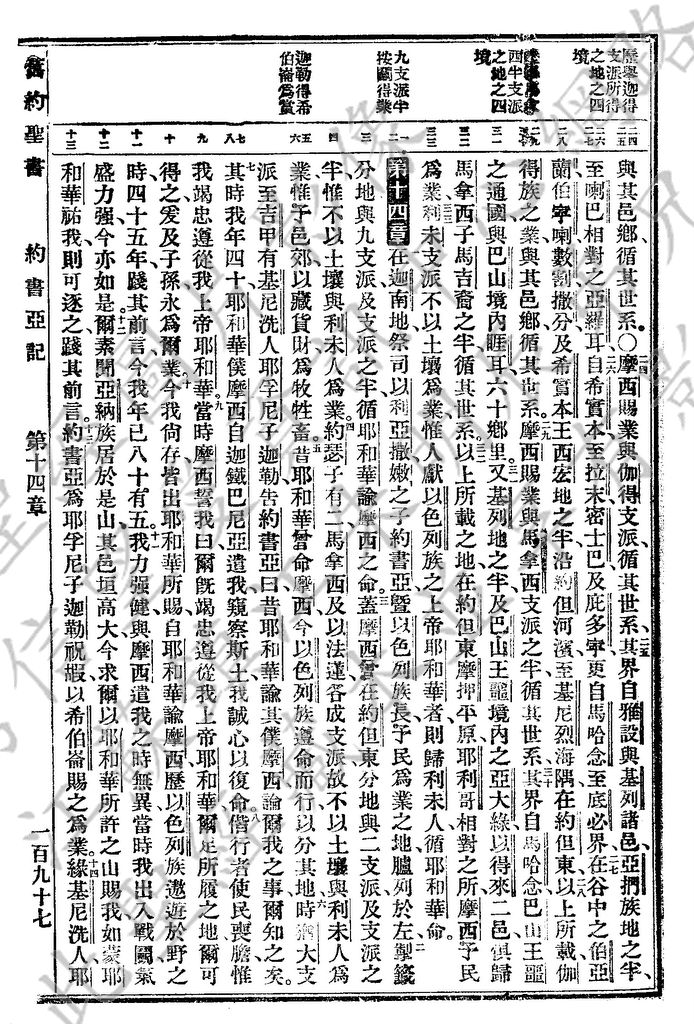 歷舉迦得
支派所得
之地之四
境
西半支派
之地之四
境
九支派半
按鬮得業
迦勒得希
伯崙為業
與其邑鄉循其世系○摩西賜業與伽得支派循其世系其界自雅設與基列諸邑亞捫族地之半
至喇巴相對之亞羅耳自希實本至拉末密士巴及庇多寧更自馬哈念至底必界在谷中之伯亞
蘭伯寧喇數割撒分及希實本王西宏地之半沿約但河濱至基尼烈海隅在約但東以上所載伽
得族之業與其邑鄉循其世系摩西賜業與馬拿西支派之半循其世系其界自馬哈念巴山王噩
之通國與巴山境內睚耳六十鄉里又基列地之半及巴山王噩境內之亞大綠以得來二邑俱歸
馬拿西子馬吉裔之半循其世系以上所載之地在約但東摩押平原耶利哥相對之所摩西予民
為業利未支派不得業惟人獻以色列族之上帝耶和華者則歸利未人循耶和華命
第十四章 在迦南地祭司以利亞撒嫩之子約書亞暨以色列族長予民為業之地臚列於左掣籤
分地與九支派及支派之半循耶和華諭摩西之命蓋摩西嘗在約但東分地與二支派及支派之
半惟不以土壤與利未人為業約瑟子有二馬拿西及以法蓮各成支派故不以土壤與利未人為
業惟予邑郊以藏貨財為牧牲畜昔耶和華嘗命摩西今以色列族遵命而行以分其地時猶大支
派至吉甲有基尼洗人耶孚尼子迦勒告約書亞曰昔耶和華諭其僕摩西論爾我之事爾知之矣
其時我年四十耶和華僕摩西自迦鐵巴尼亞遣我窺察斯土我誠心以復命偕行者使民喪膽惟
我竭忠遵從我上帝耶和華當時摩西誓我曰爾旣竭忠遵從我上帝耶和華爾足所履之地爾可
得之爰及子孫永為爾業今我尚存皆出耶和華所賜自耶和華諭摩西歷以色列族遨遊於野之
時四十五年踐其前言今我年已八十有五我力强健與摩西遣我之時無異當時我出入戰鬭氣
盛力强今亦如是爾素聞亞納族居於是山其邑垣高大今求爾以耶和華所許之山賜我如蒙耶
和華祐我則可逐之踐其前言約書亞為耶孚尼子迦勒祝嘏以希伯崙賜之為業緣基尼洗人耶
舊約聖書 約書亞記 第十四章 一百九十七